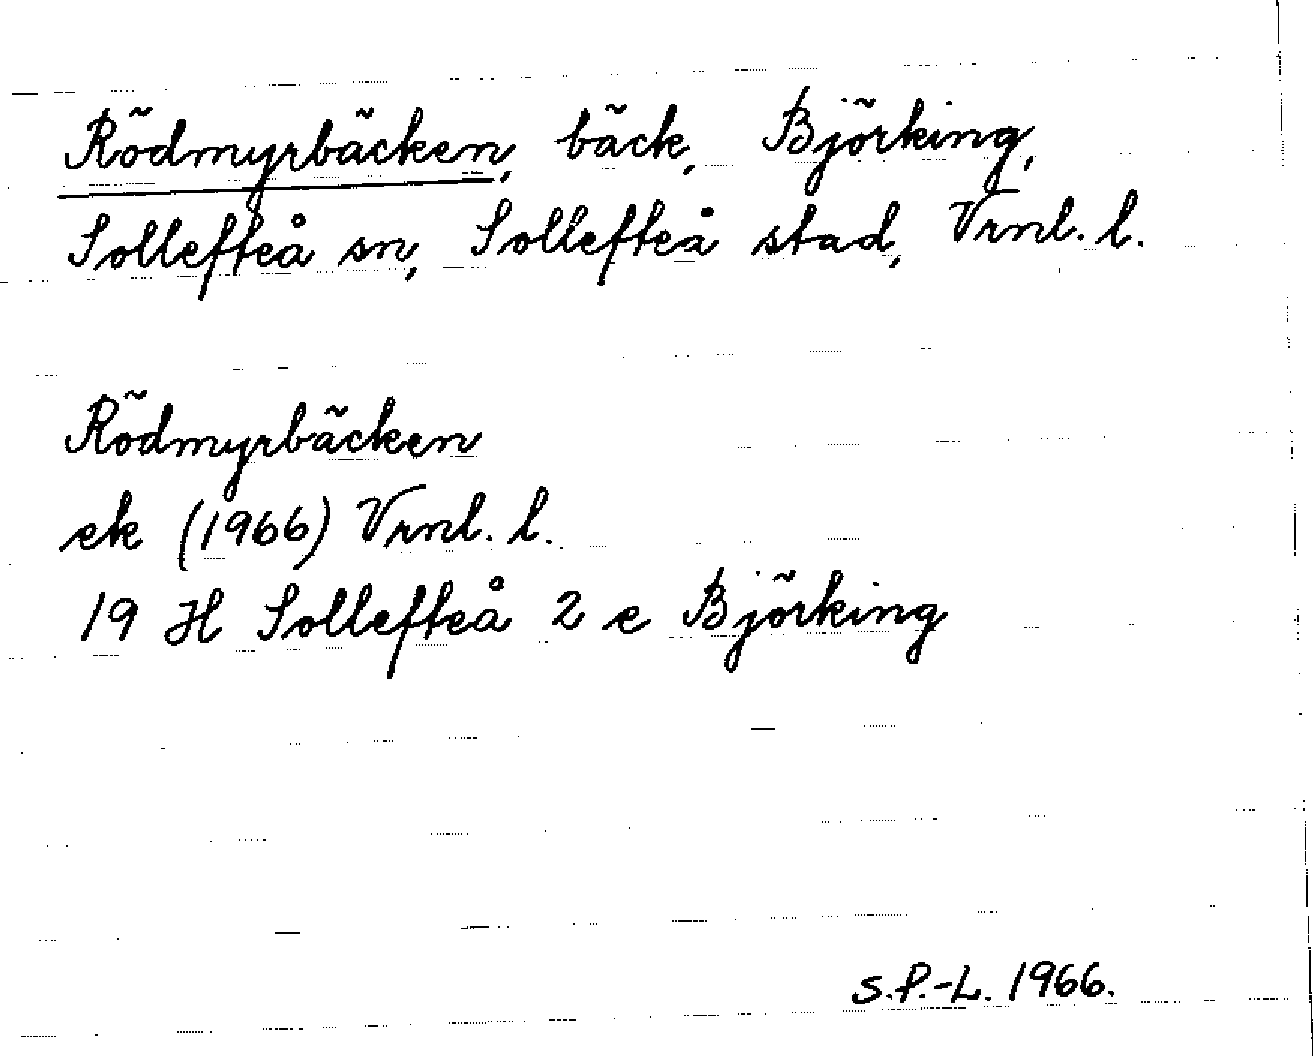 Rödmyrbäcken, bäck, Björking,
Sollefteå sn, Sollefteå stad, Vrnl. l.
Rödmyrbäcken
ek (1966) Vrnl. l.
19 H Sollefteå 2 e Björking
S.P.-L. 1966.